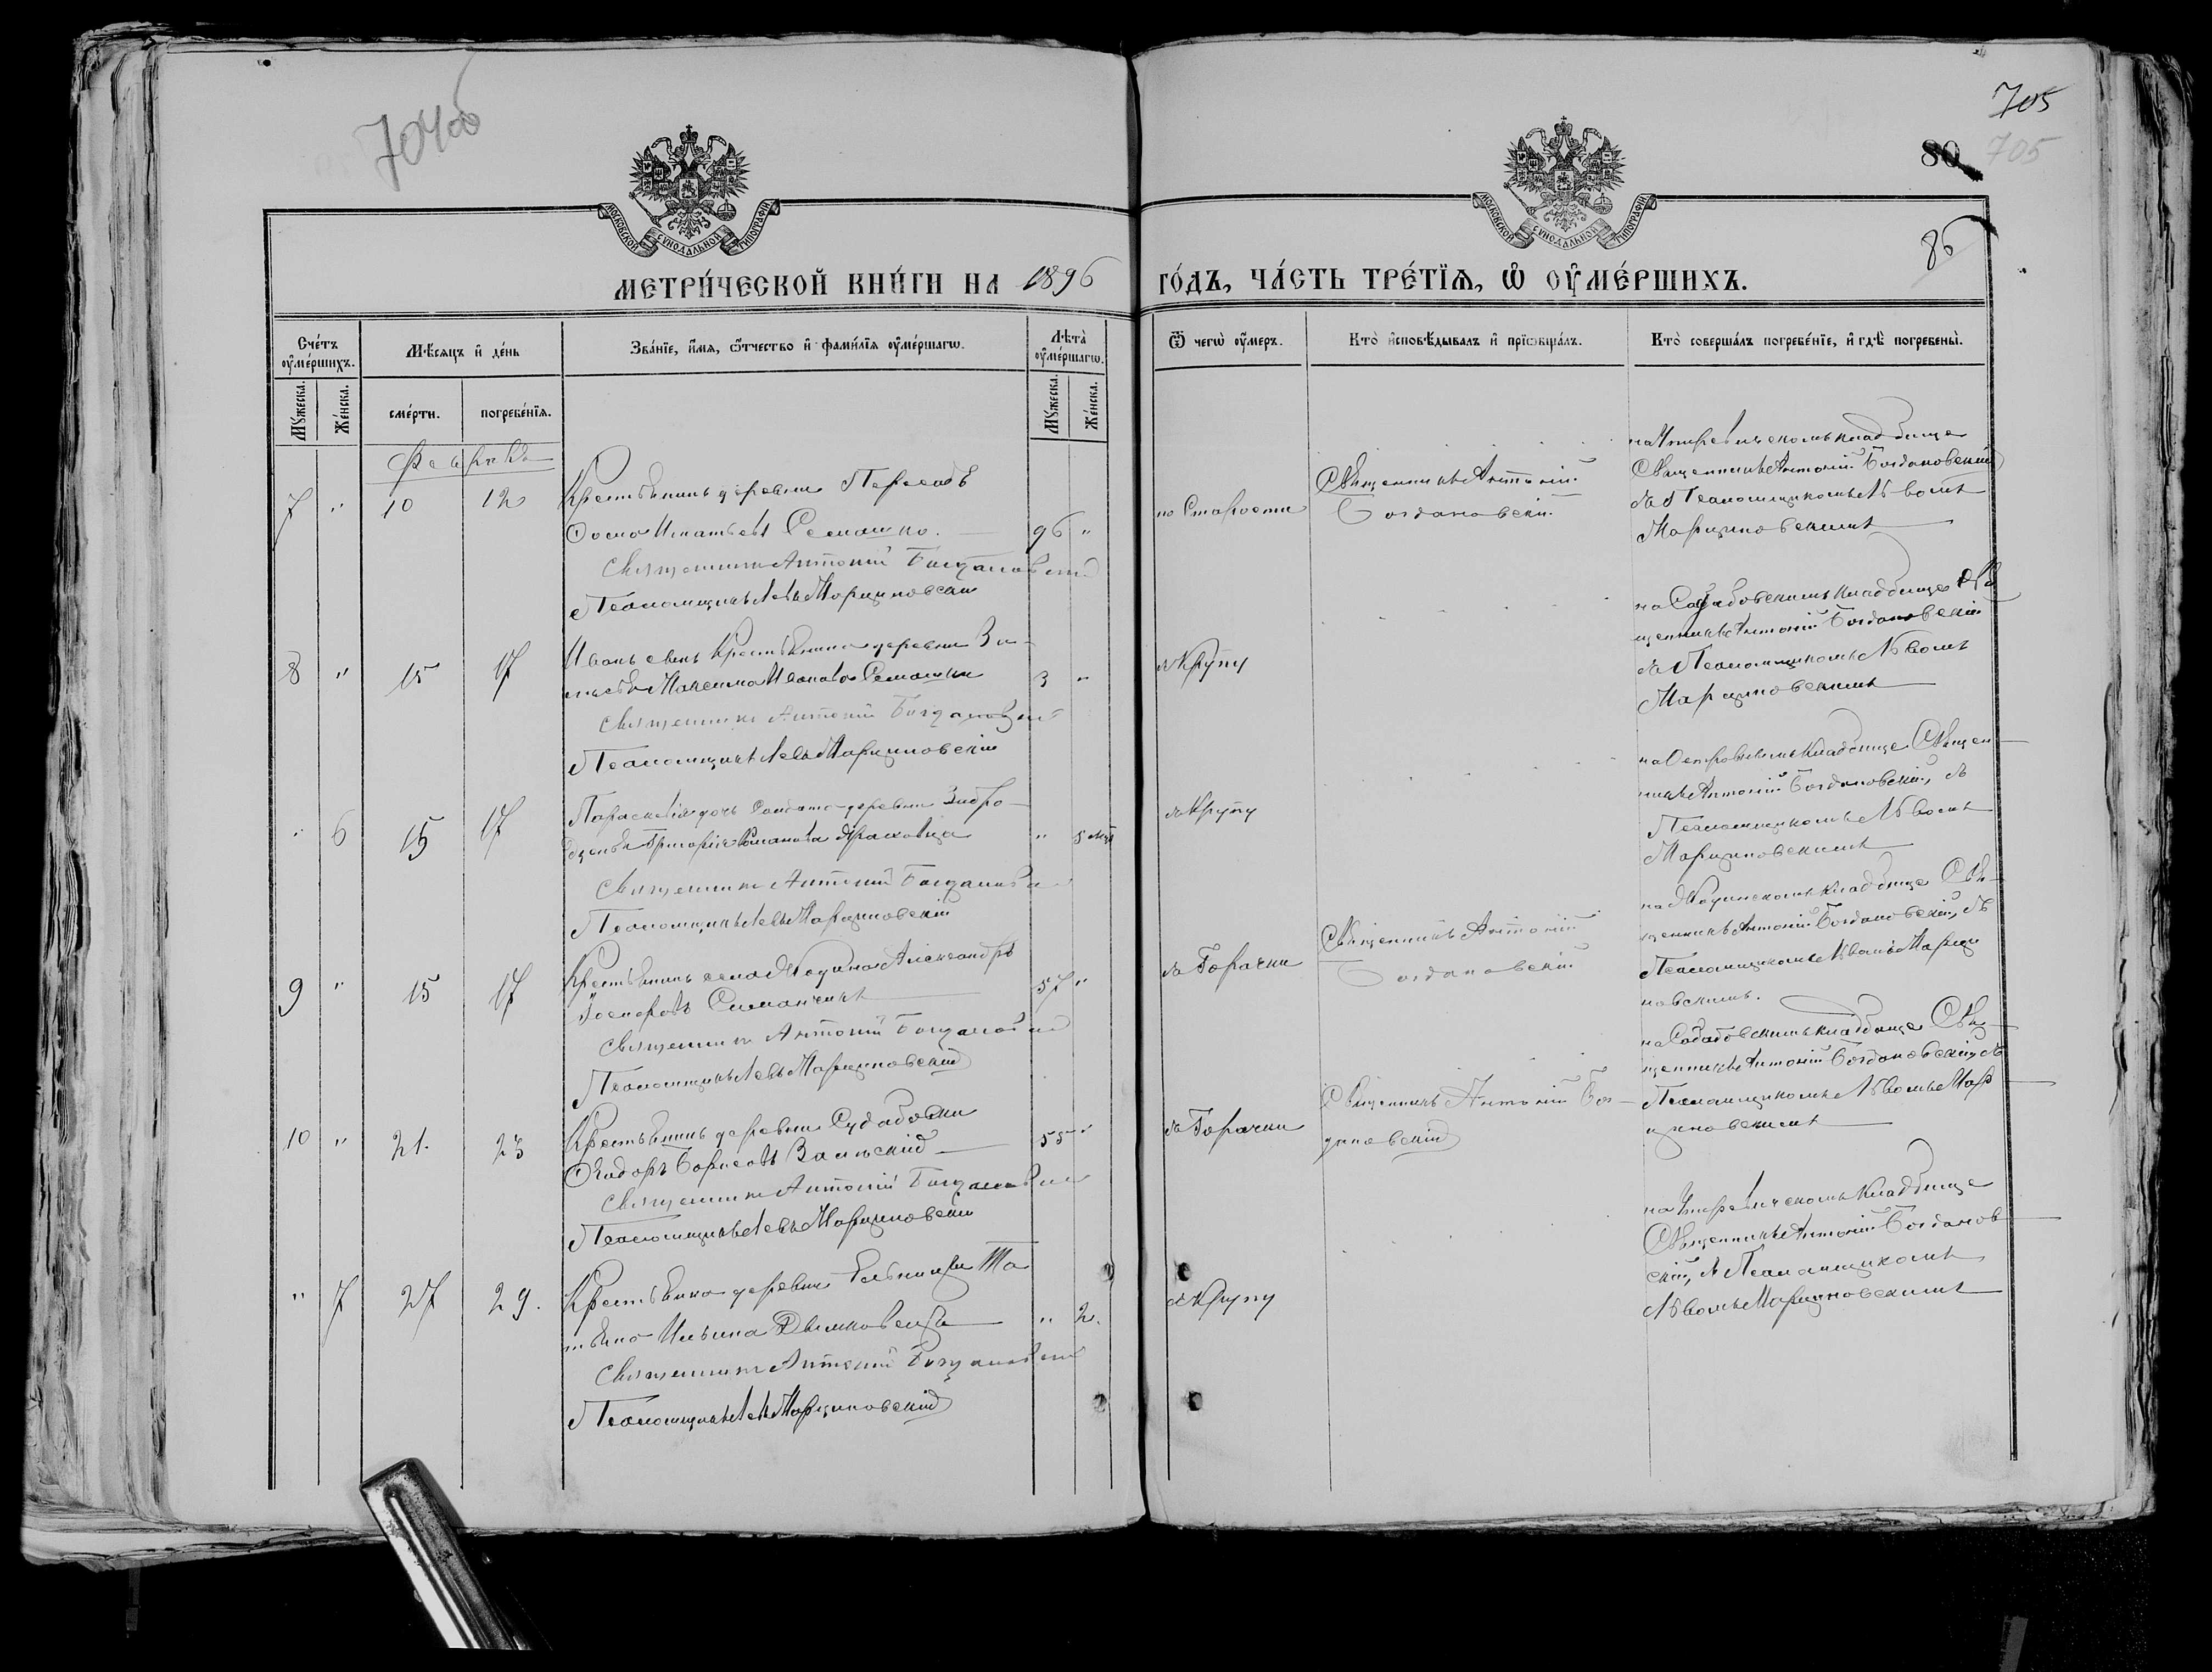 704об
705
80
705
86
МОСКОВСКОЙ СѴНОДАЛЬНОЙ ТИПОГРАФІИ
МОСКОВСКОЙ СѴНОДАЛЬНОЙ ТИПОГРАФІИ
МЕТРИ́ЧЕСКОЙ КНИ́ГИ НА 1896 ГО́ДЪ, ЧА́СТЬ ТРЕ́ТЇѦ, Ѡ ОУ҆МЕ́РШИХЪ.
Сче́тъ оу҆ме́ршихъ.
Мꙋжеска.
Же́нска.
Мѣ́сяцъ и҆ де́нь
сме́рти.
погребе́нїя.
Зва́нїе, и҆́мя, ѻ҆́тчество и҆ фами́лїя оу҆ме́ршагѡ.
Лѣ́та оу҆ме́ршагѡ.
Мꙋжеска.
Же́нска.
Ѿ чегѡ̀ оу҆́меръ.
Кто̀ и҆сповѣ́дывалъ и҆ прїѡбща́лъ.
Кто̀ соверша́лъ погребе́нїе, и҆ гдѣ̀ погребены̀.
Февраль
7 " 10 12
Крестьянинъ деревни Пересадъ
Фома Игнатьевъ Семашко. 96 "
Священникъ Антоній Богдановскій
Псаломщикъ Левъ Марциновскій
по Старости
Священникъ Антоній
Богдановскій
кладбище
Священникъ Антоній Богдановскій
съ Псаломщикомъ Львомъ
Марциновскимъ
8 " 15 17
Иванъ сынъ Крестьянина деревни
Максима Иванова Семашки 3 "
Священникъ Антоній Богдановскій
Псаломщикъ Левъ Марциновскій
въ Крупу
на кладбище Свя
щенникъ Антоній Богдановскій
съ Псаломщикомъ Львомъ
Марциновскимъ
" 6 15 17
Параскевія дочь Солдата деревни
Григорія Романова " 5 мцъ
Священникъ Антоній
Псаломщикъ Левъ Марциновскій
въ Крупу
на кладбище Священ
никъ Антоній Богдановскій, съ
Псаломщикомъ Львомъ
Марциновскимъ
9 " 15 17
Крестьянинъ села Александръ
57 "
Священникъ Антоній Богдановскій
Псаломщикъ Левъ Марциновскій
въ Горячки
Священникъ Антоній
Богдановскій
на кладбище Свя
щенникъ Антоній Богдановскій, съ
Псаломщикомъ Львомъ Марци
новскимъ.
10 " 21. 23
Крестьянинъ деревни Судабовки
Ѳеодоръ Борисовъ 55 "
Священникъ Антоній
Псаломщикъ Левъ Марциновскій
въ Горячки
Священникъ Антоній Бог
дановскій
на кладбище Свя
щенникъ Антоній Богдановскій съ
Псаломщикомъ Львомъ Мар
циновскимъ
" 7 27 29.
Крестьянка деревни Та
тьяна Ильина " 2.
Священникъ Антоній Богдановскій
Псаломщикъ Левъ Марциновскій
въ Крупу
кладбище
Священникъ Антоній Богданов
скій, съ Псаломщикомъ
Львомъ Марциновскимъ